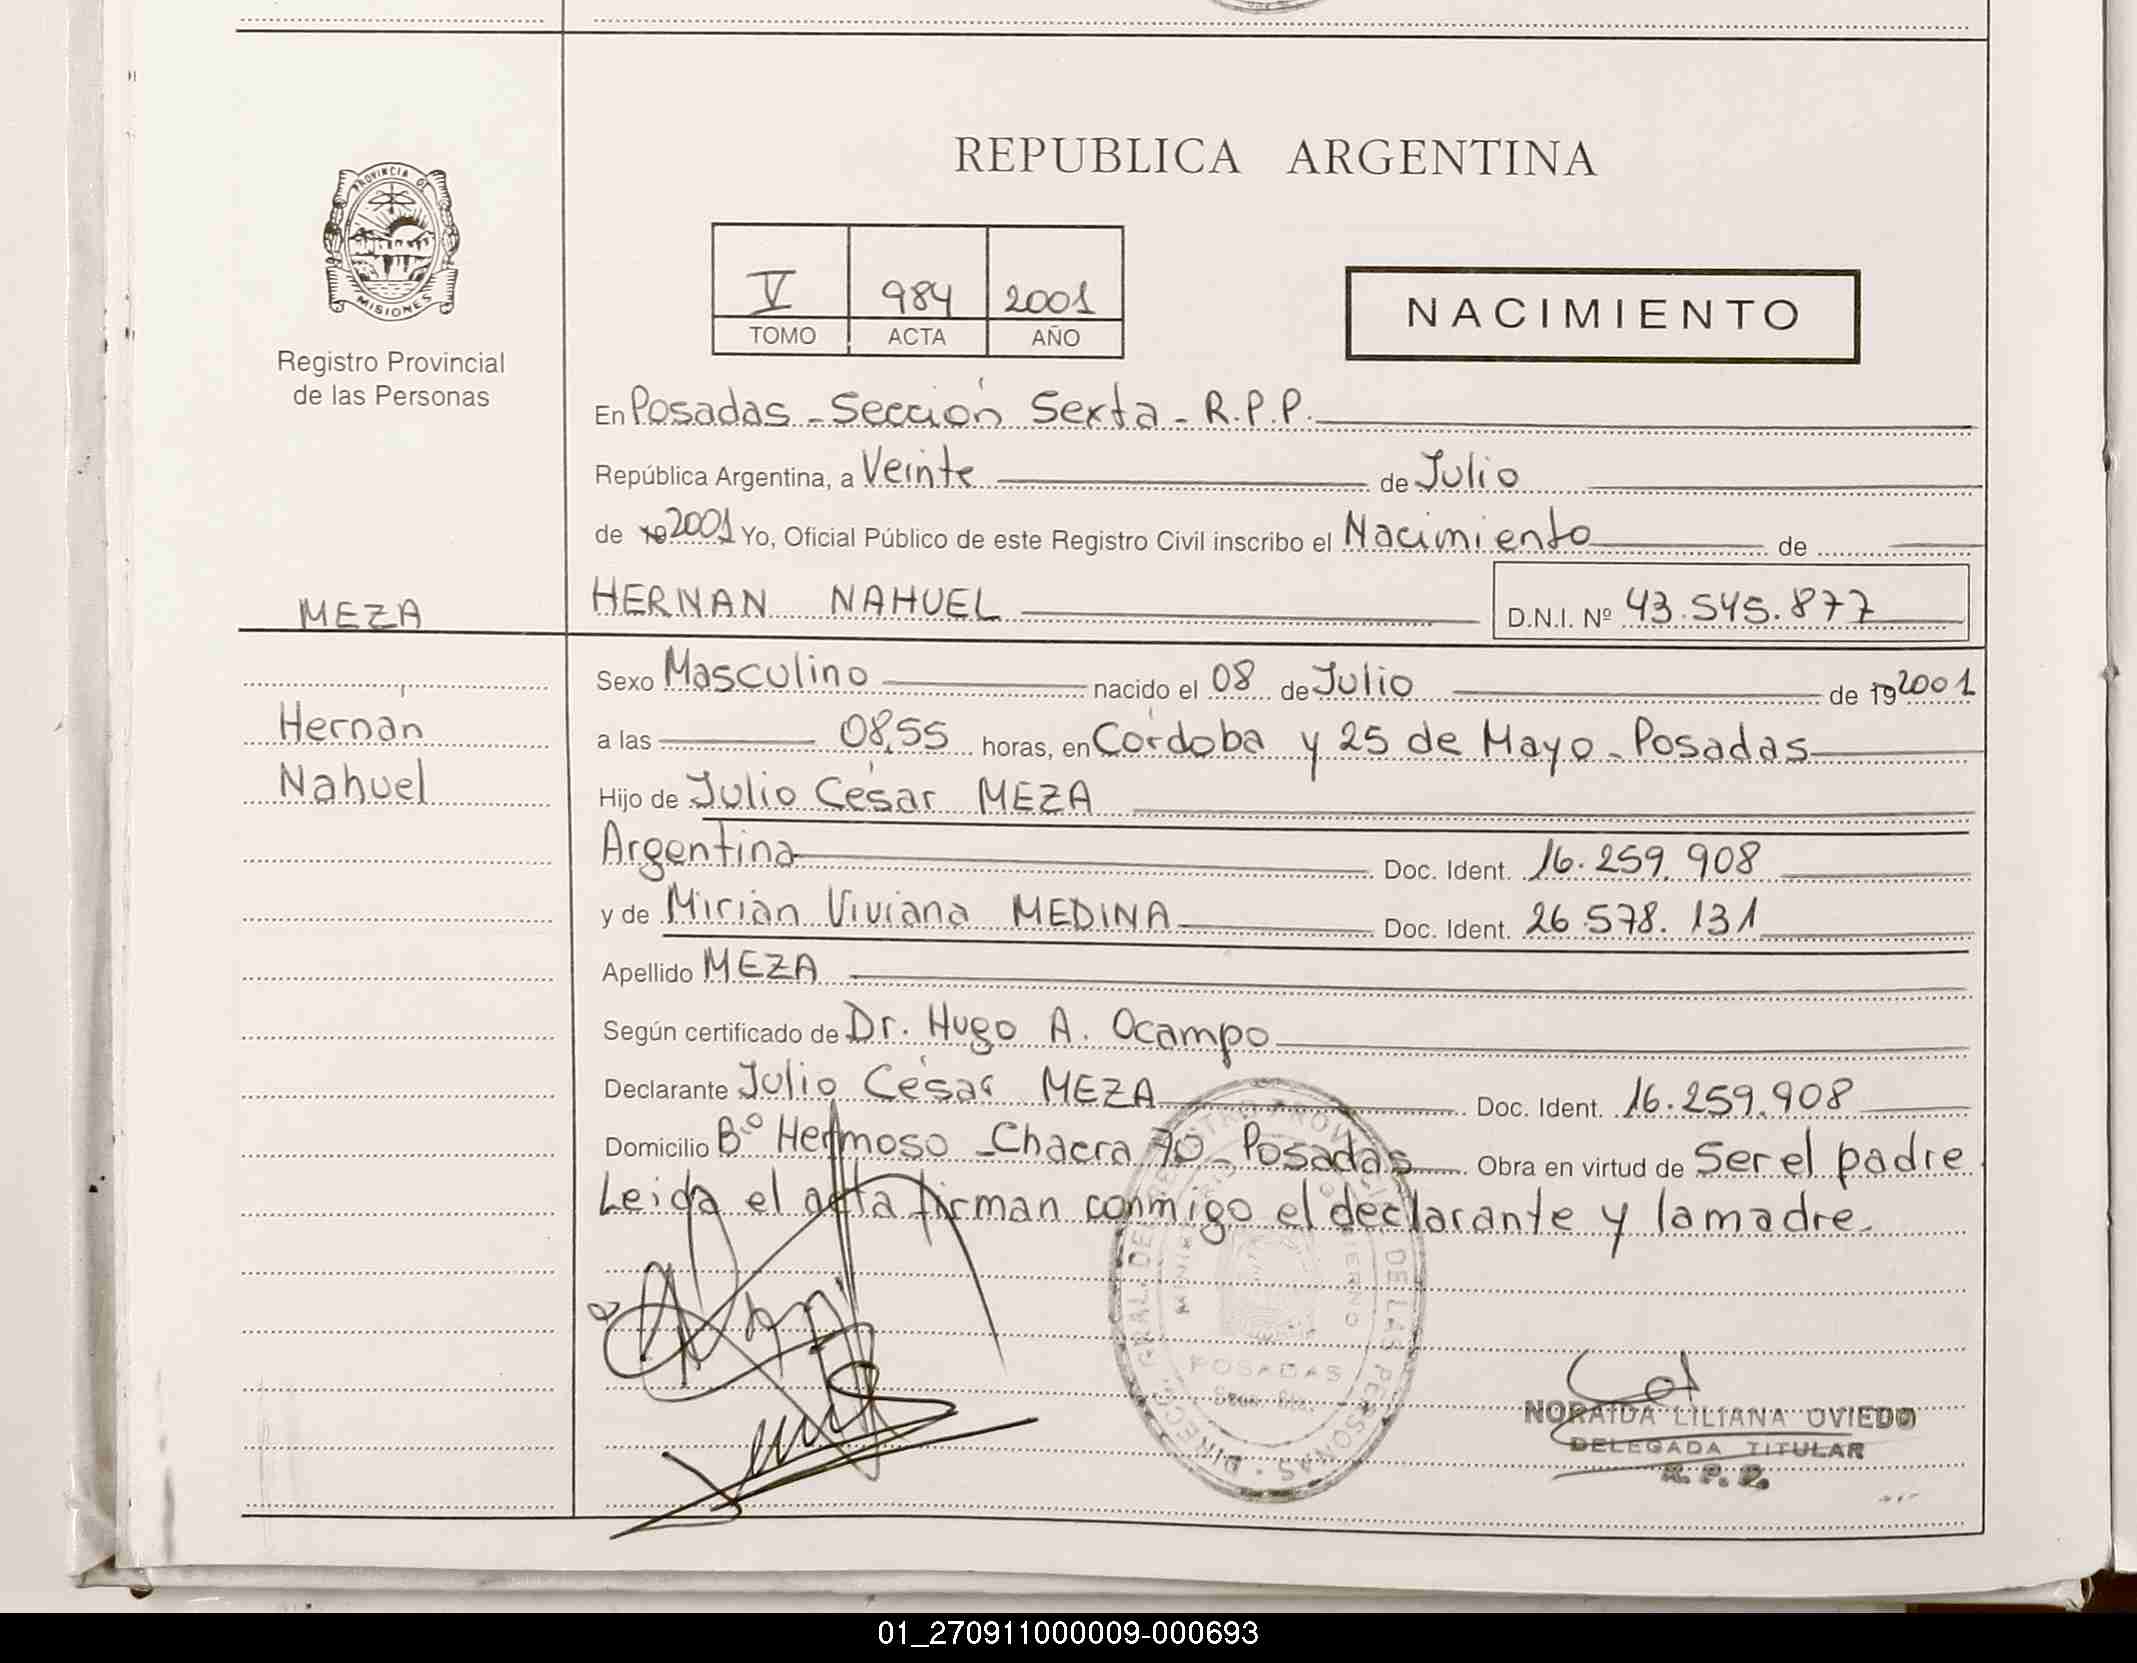 REPUBLICA ARGENTINA
PROVINCIA DE
MISIONES
Registro Provincial
de las Personas
V 984 2001
TOMO ACTA AÑO
NACIMIENTO
En Posadas - Sección Sexta - R.P.P.
República Argentina, a Veinte de Julio
de 19 2001 Yo, Oficial Público de este Registro Civil inscribo el Nacimiento de
MEZA
HERNAN NAHUEL D.N.I. Nº 43.545.877
Sexo Masculino nacido el 08 de Julio de 19 2001
Hernan
a las 08,55 horas, en Córdoba y 25 de Mayo - Posadas
Nahuel
Hijo de Julio César MEZA
Argentina Doc. Ident. 16.259.908
y de Mirian Viviana MEDINA Doc. Ident. 26.578.131
Apellido MEZA
Según certificado de Dr. Hugo A. Ocampo
Declarante Julio César MEZA Doc. Ident. 16.259.908
Domicilio Bº Hermoso - Chacra 70 - Posadas Obra en virtud de Ser el padre
Leida el acta firman conmigo el declarante y la madre.
DIRECC. GRAL. DE REGISTRO PROVI DE LAS PERSONAS
POSADAS
NORAIDA LILIANA OVIEDO
DELEGADA TITULAR
R.P.P.
01_270911000009-000693